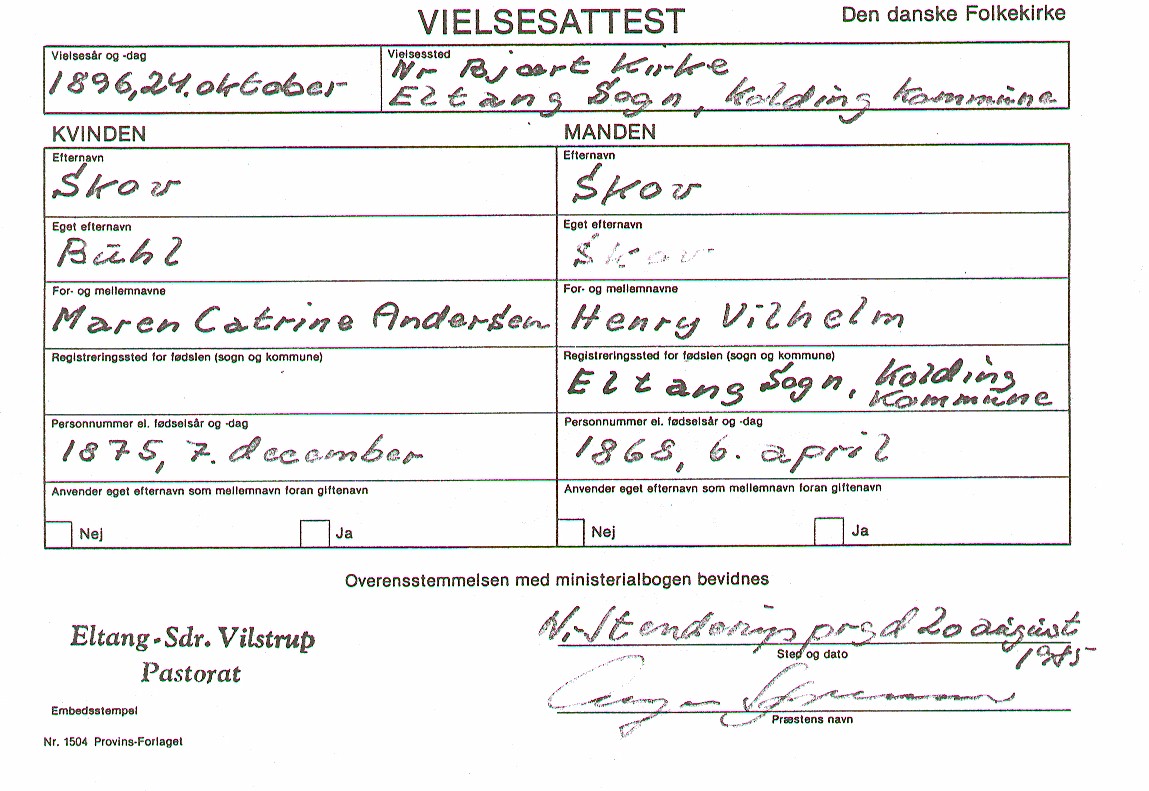 VIELSESATTEST
Den danske Folkekirke
Vielsesår og -dag
1896, 24. oktober
Vielsessted
Nr Bjært Kirke
Eltang Sogn, Kolding Kommune
KVINDEN
MANDEN
Efternavn
Skov
Efternavn
Skov
Eget efternavn
Buhl
Eget efternavn
Skov
For- og mellemnavne
Maren Catrine Andersen
For- og mellemnavne
Henry Vilhelm
Registreringssted for fødslen (sogn og kommune)
Registreringssted for fødslen (sogn og kommune)
Eltang Sogn, Kolding
Kommune
Personnummer el. fødselsår og -dag
1875, 7. december
Personnummer el. fødselsår og -dag
1868, 6. april
Anvender eget efternavn som mellemnavn foran giftenavn
Nej Ja
Anvender eget efternavn som mellemnavn foran giftenavn
Nej Ja
Overensstemmelsen med ministerialbogen bevidnes
Eltang-Sdr. Vilstrup
Pastorat
20 august
1985
Sted og dato
Præstens navn
Embedsstempel
Nr. 1504 Provins-Forlaget